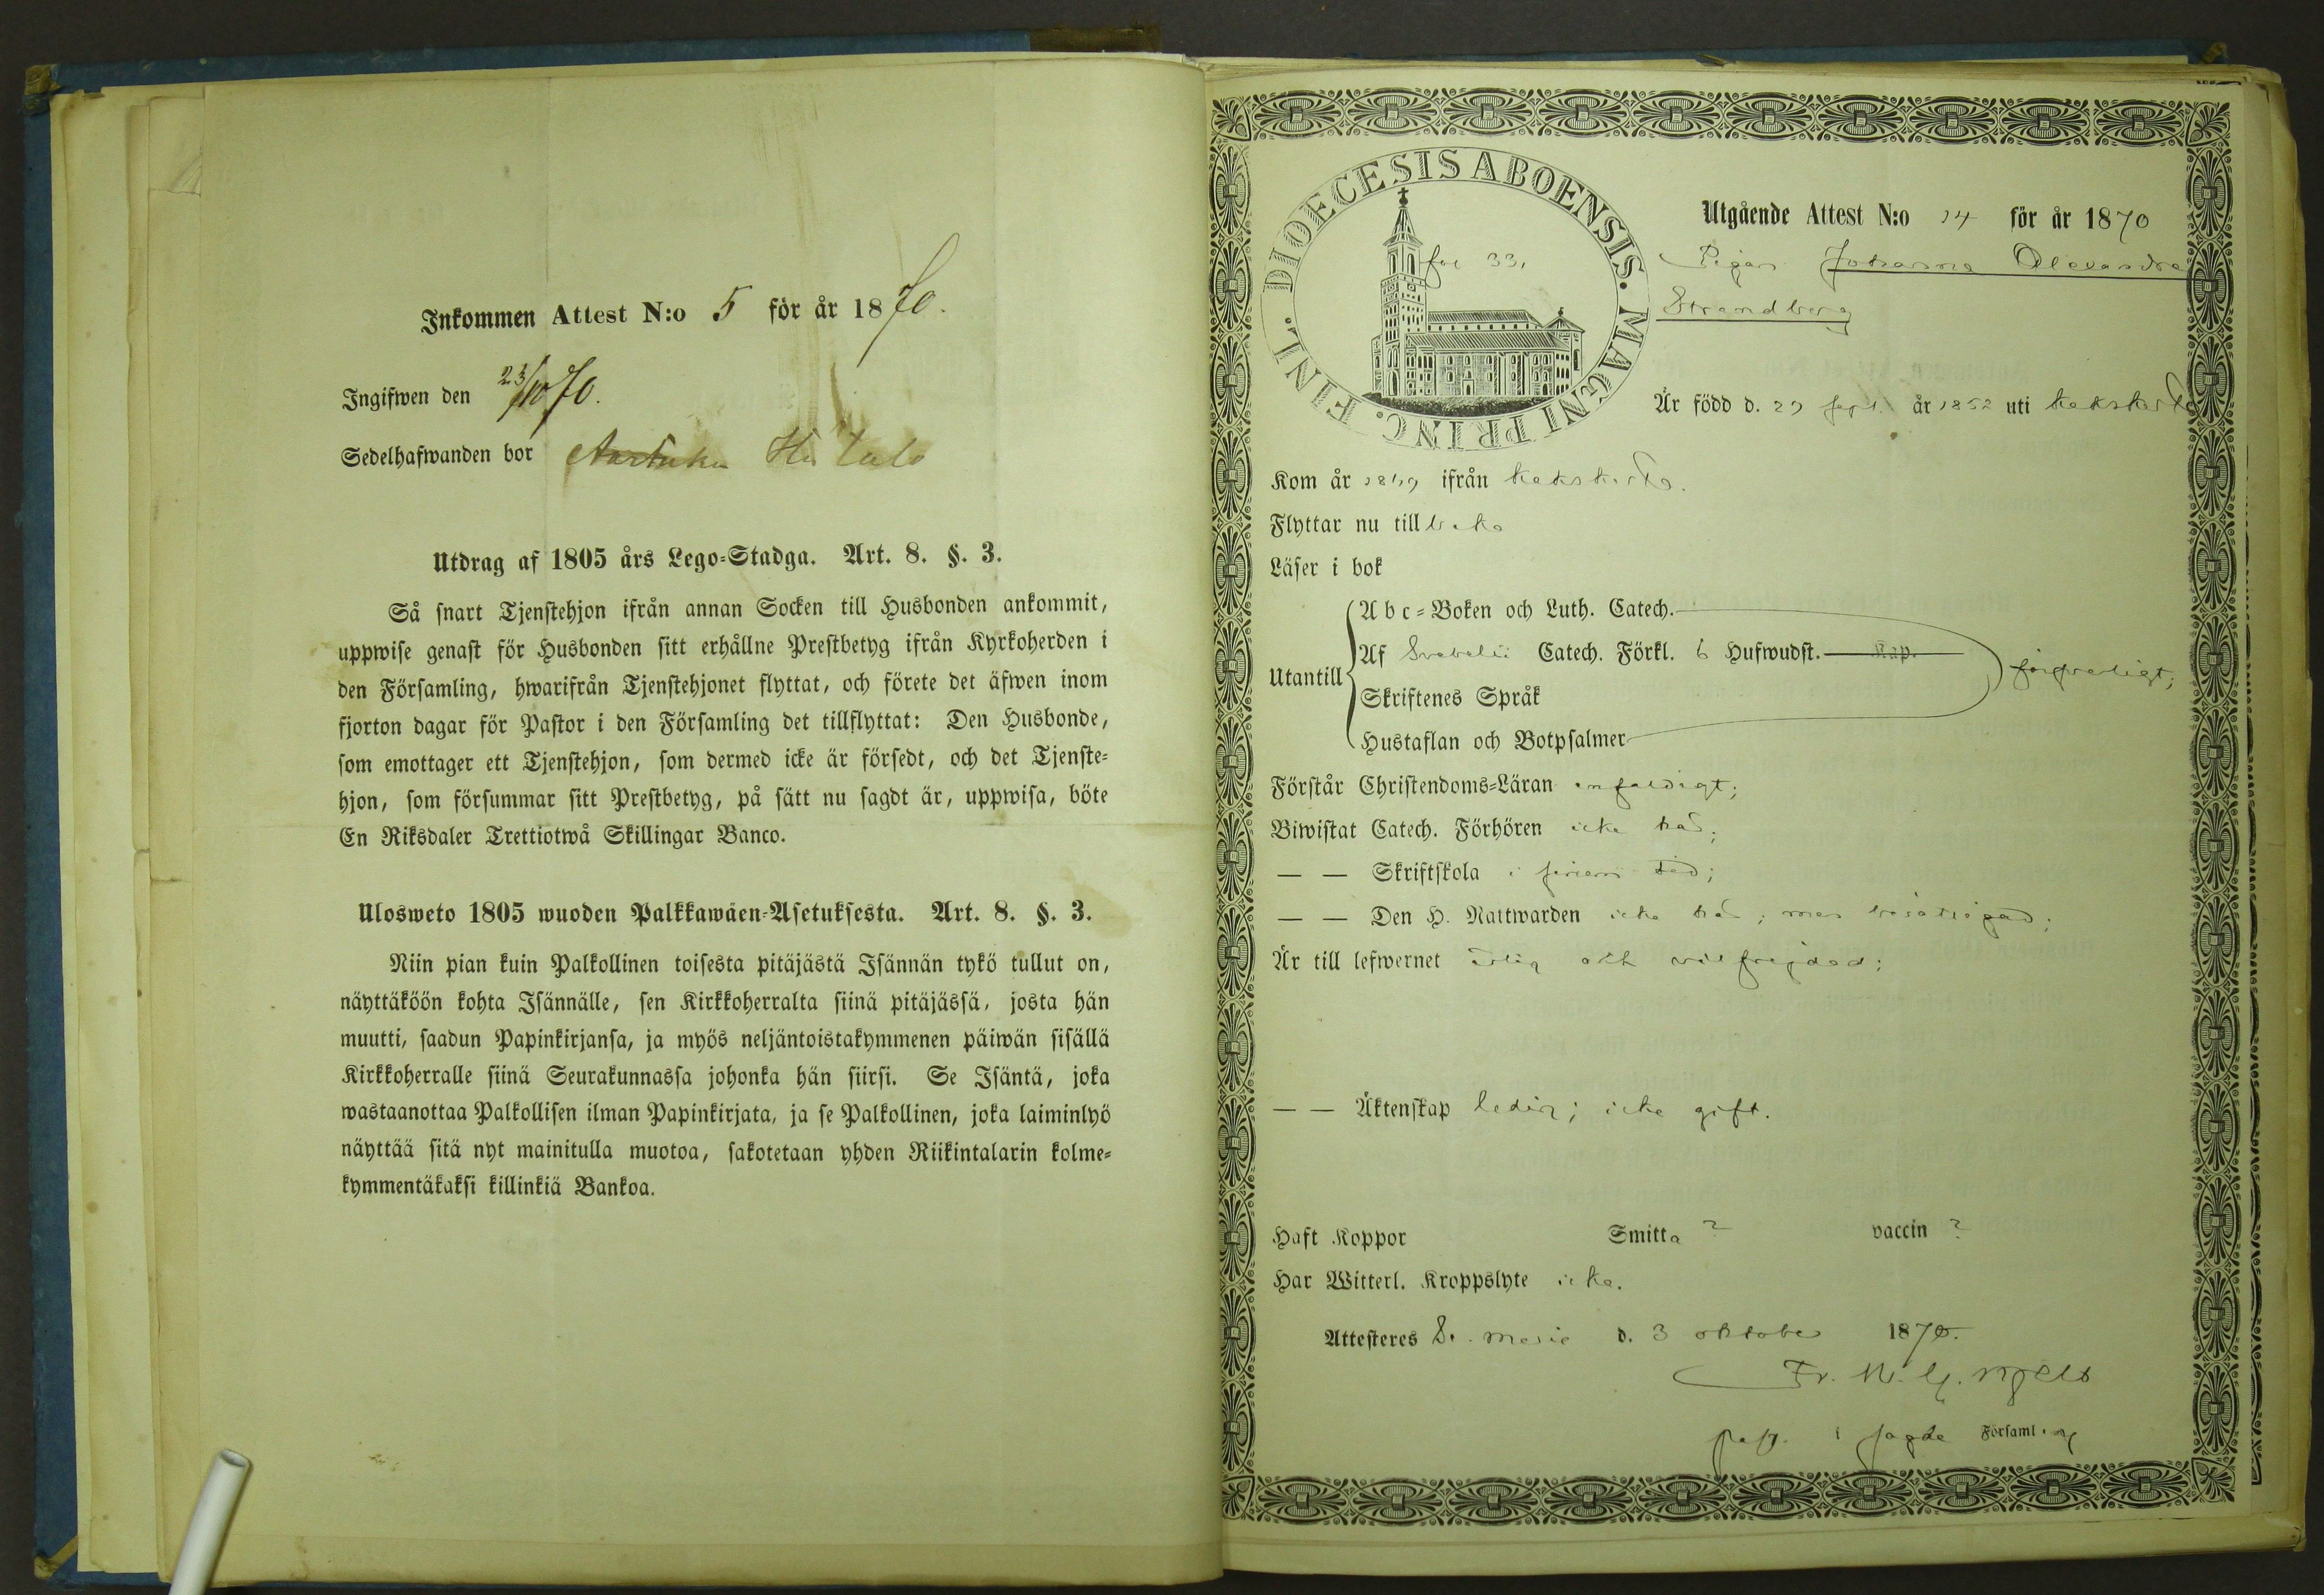 Inkommen Attest N:o 5 för år 1870.
Ingifwen den 23/10 70.
Sedelhafwanden bor
Utdrag af 1805 års Lego-Stadga. Art. 8. §. 3.
Så snart Tjenstehjon ifrån annan Socken till Husbonden ankommit,
uppwise genast för Husbonden sitt erhållne Prestbetyg ifrån Kyrkoherden i
den Församling, hwarifrån Tjenstehjonet flyttat, och förete det äfwen inom
fjorton dagar för Pastor i den Församling det tillflyttat: Den Husbonde,
som emottager ett Tjenstehjon, som dermed icke är försedt, och det Tjenste-
hjon, som försummar sitt Prestbetyg, på sätt nu sagdt är, uppwisa, böte
En Riksdaler Trettiotwå Skillingar Banco.
Ulosweto 1805 wuoden Palkkawäen-Asetuksesta. Art. 8. §. 3.
Niin pian kuin Palkollinen toisesta pitäjästä Isännän tykö tullut on,
näyttäköön kohta Isännälle, sen Kirkkoherralta siinä pitäjässä, josta hän
muutti, saadun Papinkirjansa, ja myös neljäntoistakymmenen päiwän sisällä
Kirkkoherralle siinä Seurakunnassa johonka hän siirsi. Se Isäntä, joka
wastaanottaa Palkollisen ilman Papinkirjata, ja se Palkollinen, joka laiminlyö
näyttää sitä nyt mainitulla muotoa, sakotetaan yhden Riikintalarin kolme-
kymmentäkaksi killinkiä Bankoa.
DIOECESIS ABOENSIS. MAGNI PRINC. FINL.
fol 33,
Utgående Attest N:o 14 för år 1870
Pigan Johanna Alexandra
Strandberg
Är född d. 29 sept. år 1852 uti Kakskerta
Kom år 1869 ifrån Kakskerta.
Flyttar nu tillbaka
Läser i bok
Utantill
Abc-Boken och Luth. Catech.
Af Svebelii Catech. Förkl. 6 Hufwudst. Kap.
Skriftenes Språk
Hustaflan och Botpsalmer
försvarligt;
Förstår Christendoms-Läran enfaldigt;
Biwistat Catech. Förhören icke här;
— — Skriftskola i sinom tid;
— — Den H. Nattwarden icke här; men berättigad;
Är till lefwernet ärlig och välfrejdad;
— — Äktenskap ledig; icke gift.
Haft Koppor Smitta ? vaccin ?
Har Witterl. Kroppslyte icke.
Attesteres S:t Marie d. 3 oktober 1870.
past. i sagde Församling